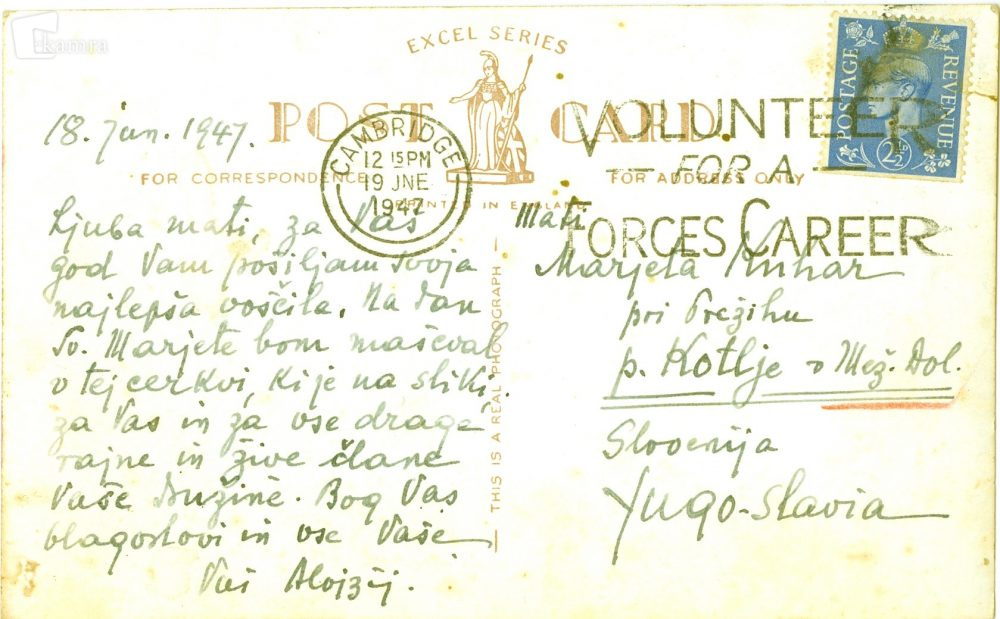 kamra
EXCEL SERIES
POST CARD
18. jun. 1947.
CAMBRIDGE
12 15 PM
19 JNE
1947
VOLUNTEER
FOR A
FORCES CAREER
POSTAGE
REVENUE
2½
FOR CORRESPONDENCE
FOR ADDRESS ONLY
PRINTED IN ENGLAND
THIS IS A REAL PHOTOGRAPH
Ljuba mati, za Vaš
god Vam pošiljam svoja
najlepša voščila. Na dan
Sv. Marjete bom maševal
v tej cerkvi, ki je na sliki,
za Vas in za vse drage
rajne in žive člane
Vaše družine. Bog Vas
blagoslovi in vse Vaše
Vaš Alojzij.
Mati
Marjeta Kuhar
pri Prežihu
p. Kotlje v Mež. Dol.
Slovenija
Yugo-slavia